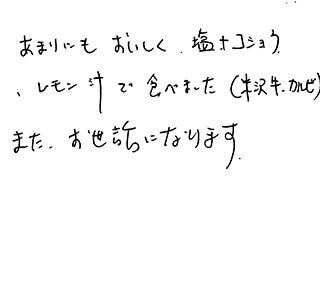 あまりにもおいしく、塩+コショウ
、レモン汁で食べました(米沢牛.カルビ)
また、お世話になります.